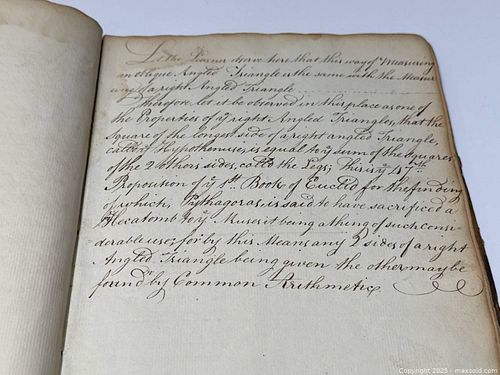 Let the Learner observe here that this way of Measuring
an oblique Angled Triangle is the same with the Measur
ing of a right Angled Triangle
Therefore let it be observed in this place as one of
the Properties of ye right Angled Triangles, that the
Square of the longest side of a right angled Triangle,
called ye Hypothenuse, is equal to ye sum of the squares
of the 2 others sides, called the Legs; This is ye 47th
Proposition of ye 1st Book of Euclid for the finding
of which, Pythagoras is said to have sacrificed a
Hecatomb to ye Muses it being a thing of such consi-
derable use; for by this Means any 2 sides of a right
Angled Triangle being given the other may be
found by Common Arithmetic
Copyright 2025 - maxsold.com